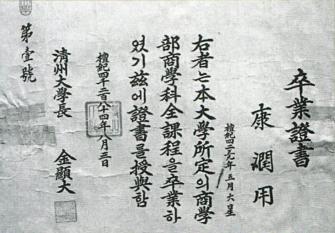 卒業證書
康潤用
檀紀四二九年五月六日生
右者는本大學所定의商學
部商學科全課程을卒業하
였기玆에證書를授與함
檀紀四千二百八十四年八月三日
淸州大學長 金顯大
第壹號